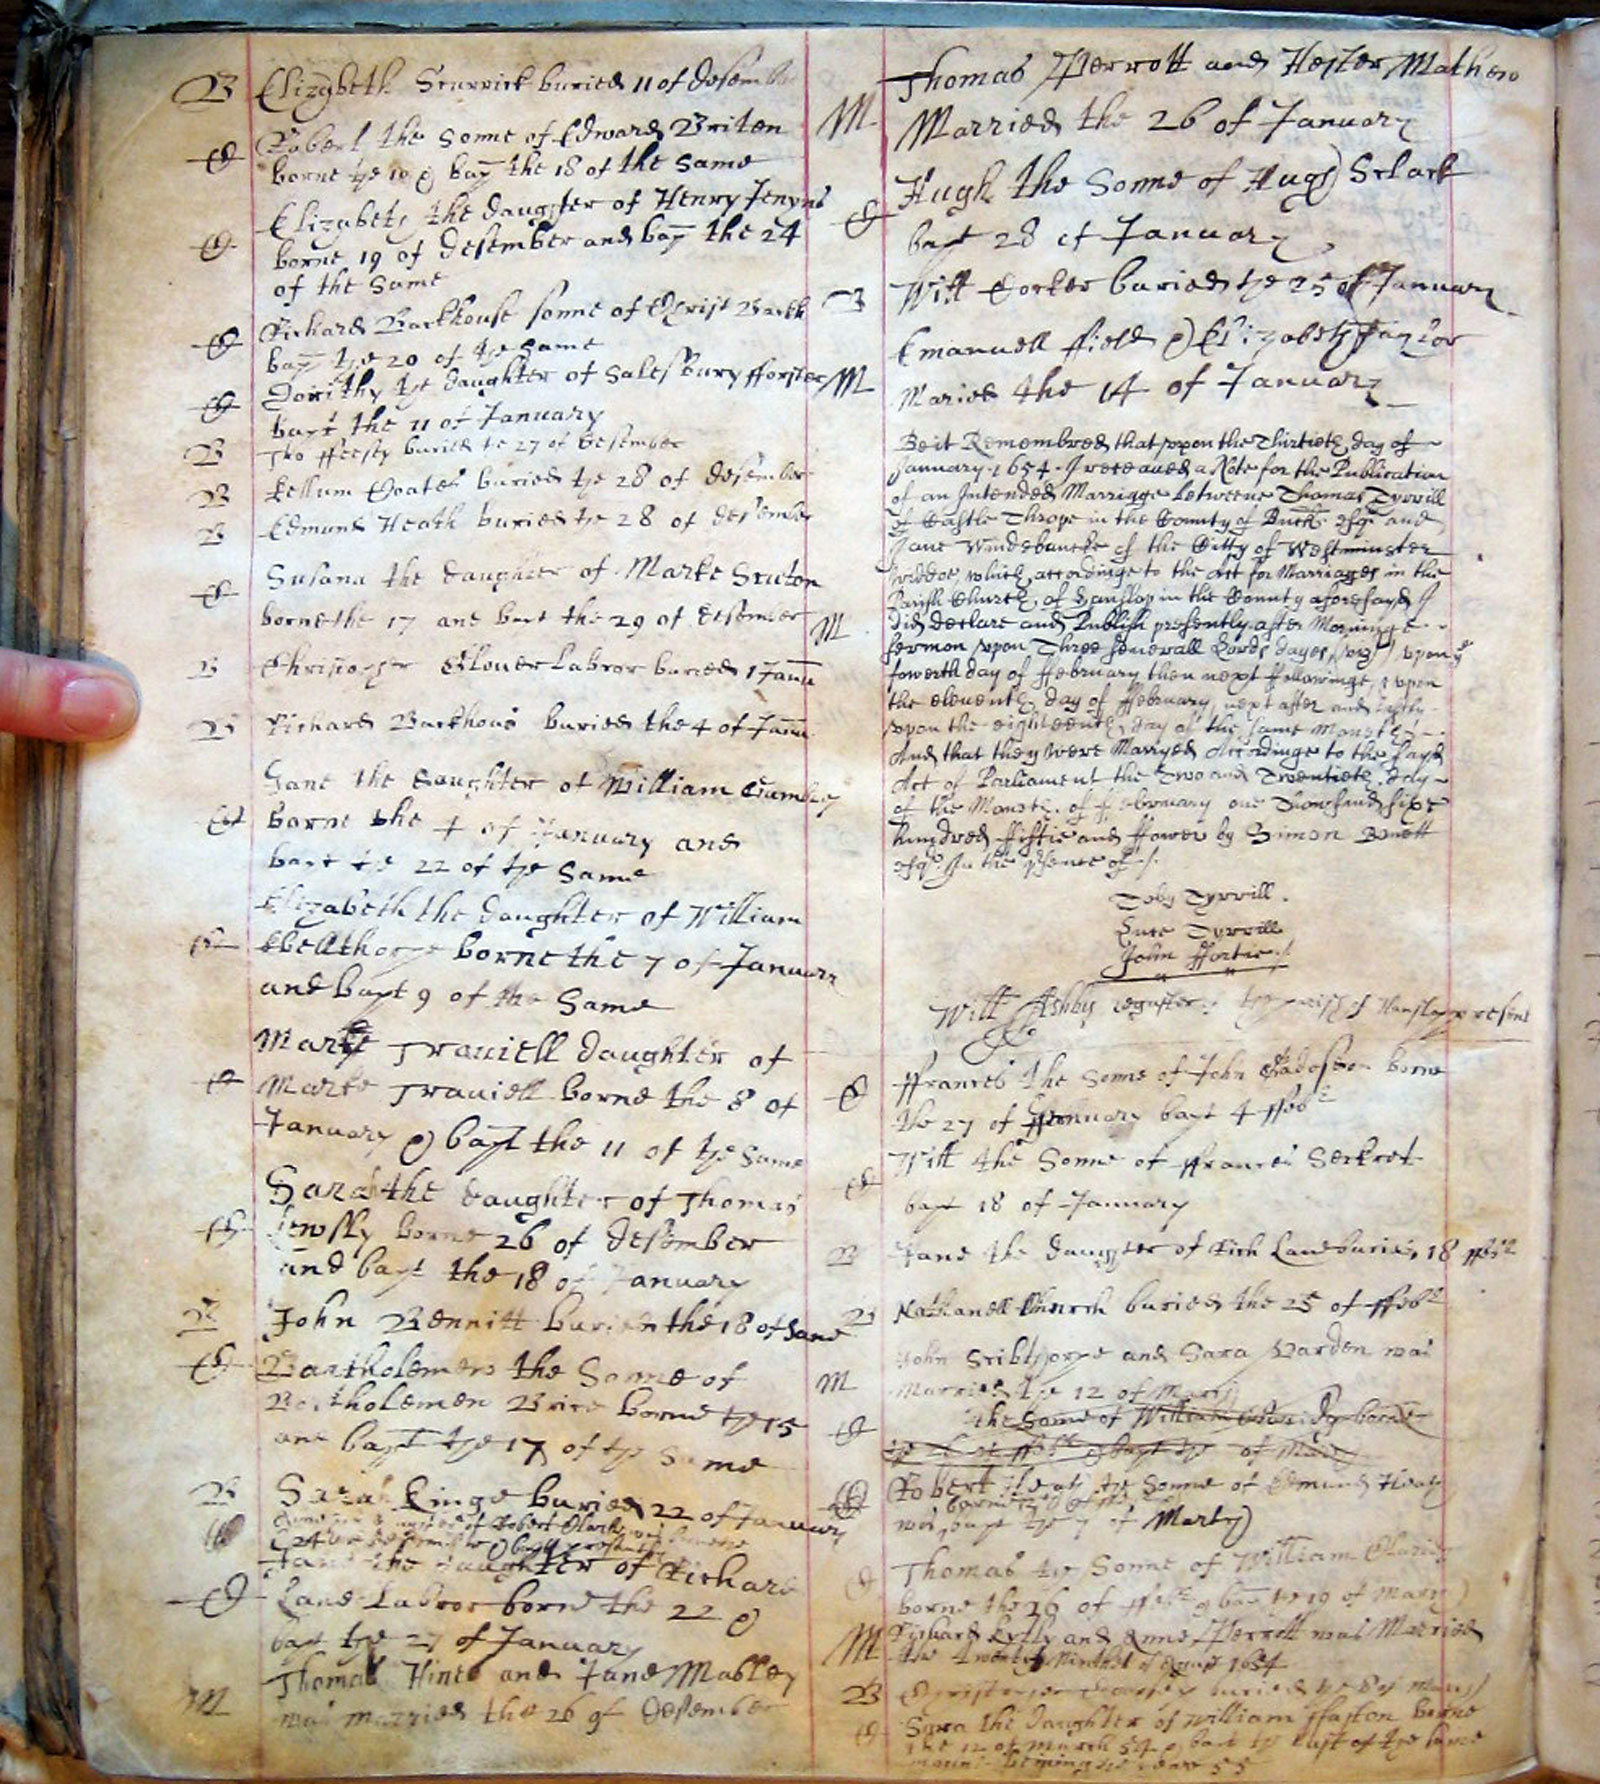 B Elizabeth Sturrick buried 11 of desember
Robert the sonne of Edward Briten
C borne the 10 & bap the 18 of the same
Elizabeth the daughter of Henry Jenyns
C borne 19 of desember and bap the 24
of the same
C Richard Backhouse sonne of Christ Backh
bap the 20 of the same
C Dorithy the daughter of Salesbury fforster
bapt the 11 of January
B Tho buried the 27 of desember
B Kellum Coates buried the 28 of desember
B Edmund Heath buried the 28 of desember
C Susana the daughter of Marke
borne the 17 and bapt the 29 of desember
B Christopher Glover Labror buried 1 Janu
B Richard Backhous buried the 4 of Janu
Jane the daughter of William
C borne the 4 of January and
bapt the 22 of the same
Elizabeth the daughter of William
C borne the 7 of January
and bapt 9 of the same
Mary Traviell daughter of
C Marke Traviell borne the 8 of
January & bapt the 11 of the same
Sarah the daughter of Thomas
C borne 26 of desember
and bapt the 18 of January
B John Bennitt buried the 18 of Janu
C Bartholemew the Sonne of
Bartholemew Brice borne the 15
and bapt the 17 of the same
B Sarah Kinge buried 22 of January
of Robert Clarke
Jane the daughter of Richard
C Lane Labror borne the 22 &
bapt the 27 of January
Thomas Hines and Jane Mabley
M was married the 26 of desember
Thomas Perrott and Hester Mathew
M Married the 26 of January
Hugh the Sonne of Hugh
C bapt 28 of January
B Will Cocker buried the 25 of January
Emanuell ffield & Elizabeth Taylor
M Maried the 14 of January
Be it Remembred that uppon the Thirtieth day of
January 1654 I receaued a Note for the Publication
of an Intended Marriage betweene Thomas Tyrrill
of Castle Thrope in the County of Buck Esqr and
Jane Windebancke of the Citty of Westminster
widdoe, which accordinge to the Act for Marriages in the
Parish Church of Hanslop in the County aforesayd I
M did declare and Publish presently after Morninge
sermon upon Three seuerall Lords dayes, (viz) upon ye
fowerth day of ffebruary then next ffollowinge, upon
the eleuenth day of ffebruary, next after and lastly
upon the eighteenth day of the same Moneth
And that they were Marryed Accordinge to the sayd
Act of Parliament the Two and Twentieth day
of the Moneth of ffebruary one Thowsand sixe
hundred ffiftie and ffower by Simon Benett
Esqr In the presence of
Toby Tyrrill
Luce Tyrrill
John ffortie
Will Ashby register the parish of Hanslop present
C ffrances the Sonne of John borne
the 27 of bapt 4 ffeb
C Will the Sonne of ffrances Seckret
bapt 18 of January
B Jane the daughter of Rich Lane buried 18 ffeb
B Nathanell Church buried the 25 of ffeb
John Scibthorpe and Sara Varden was
M Married the 12 of March
C the Sonne of William borne
of ffeb & bapt the of March
C Robert Heath the Sonne of Edmund Heath
borne
was bapt the 7 of March
C Thomas the Sonne of William
borne the 26 of ffeb & bap the 19 of March
M Richard and Anne Perrott was Married
the Twenty Ninthe of August 1654
B Christopher buried the 8 of March
C Sara the Daughter of William borne
the 12 of March 54 & bapt the last of the same
55